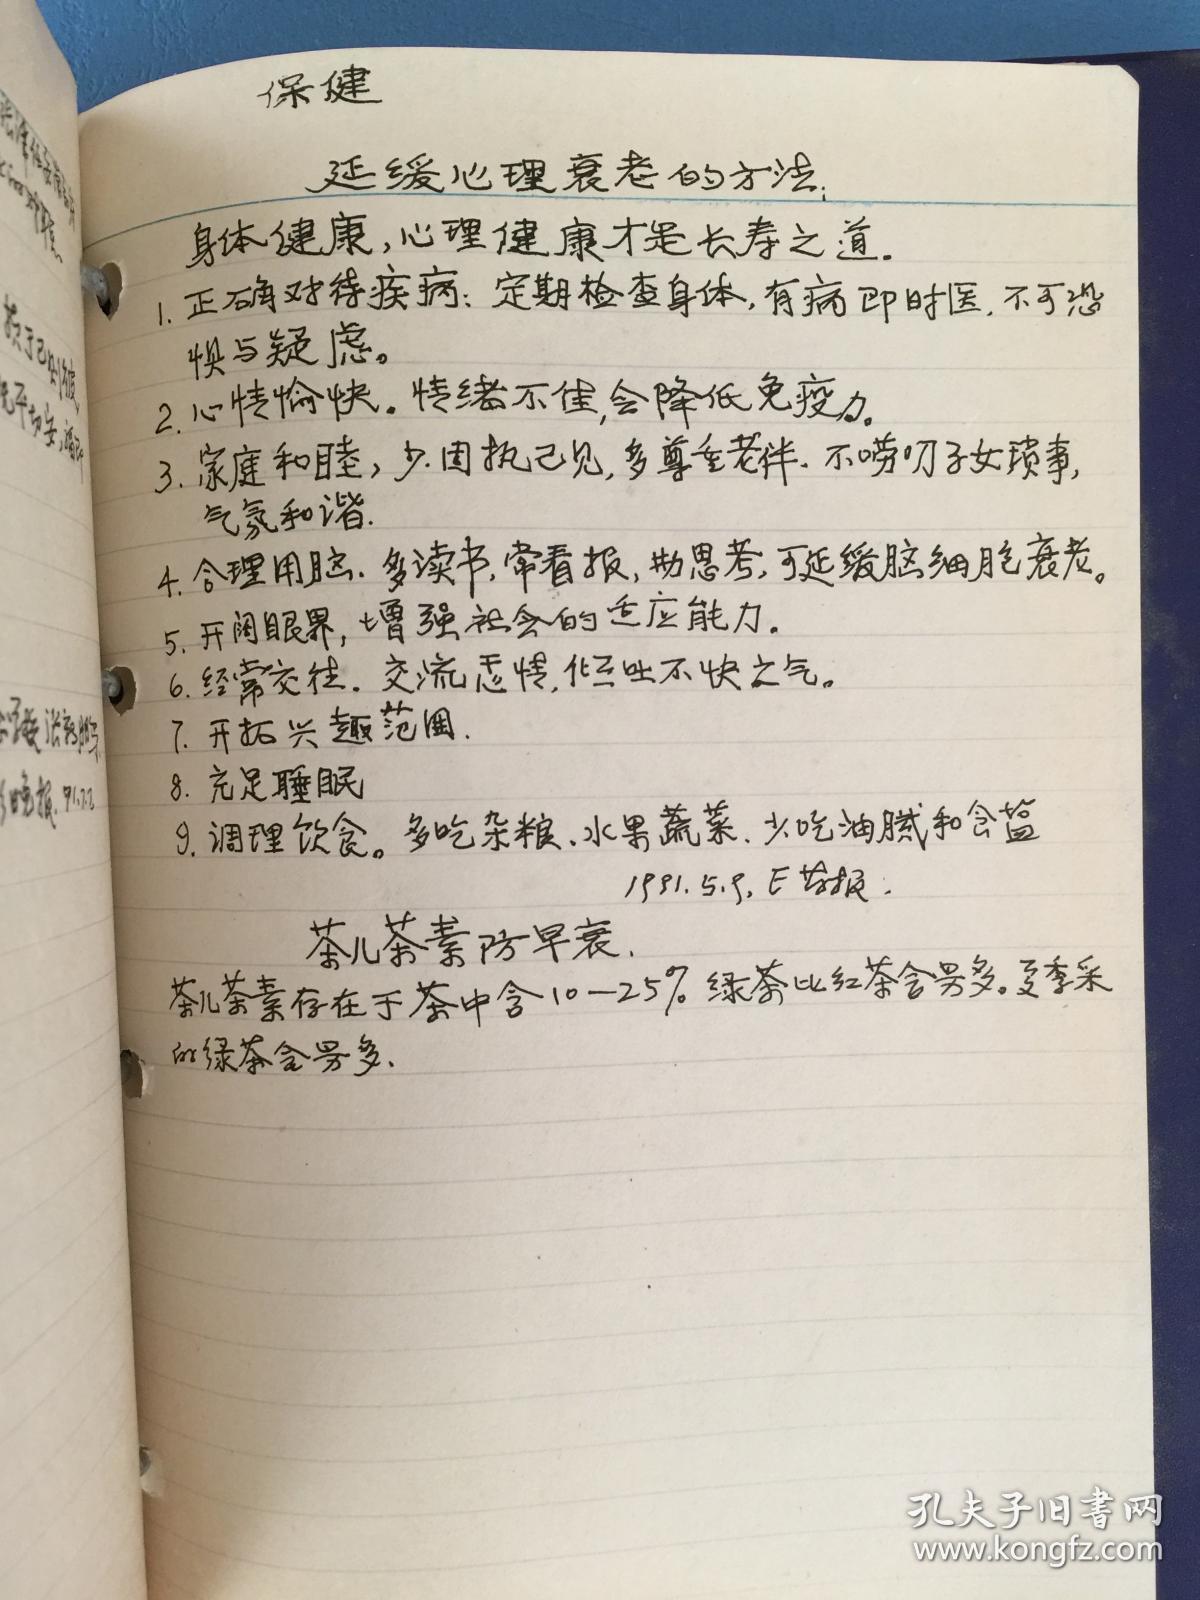 保健
延缓心理衰老的方法:
身体健康,心理健康才是长寿之道.
1. 正确对待疾病: 定期检查身体,有病即时医.不可恐
惧与疑虑。
2. 心情愉快。情绪不佳,会降低免疫力。
3. 家庭和睦,少固执己见,多尊重老伴.不唠叨子女琐事,
气氛和谐.
4. 合理用脑.多读书,常看报,勤思考,可延缓脑细胞衰老。
5. 开阔眼界,增强社会的适应能力.
6. 经常交往.交流感情,倾吐不快之气。
7. 开拓兴趣范围.
8. 充足睡眠
9. 调理饮食。多吃杂粮、水果蔬菜.少吃油腻和食盐
1991.5.9.
茶儿茶素防早衰.
茶儿茶素存在于茶中含10—25%绿茶比红茶含另多。夏季采
的绿茶含另多.
晚报.91.2.2
孔夫子旧书网
www.kongfz.com